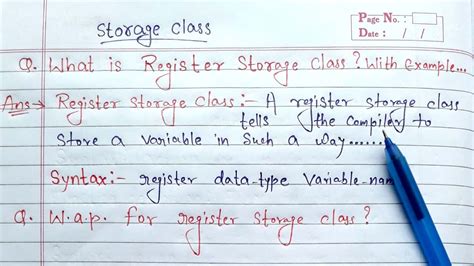 Storage Class
Page No. :
Date : / /
Q. What is Register Storage Class? With Example...
Ans→ Register Storage Class :- A register storage class
tells the Compiler to
Store a variable in Such a way.......
Syntax:- register data-type Variable-nam
Q. W.a.p. for register Storage class ?